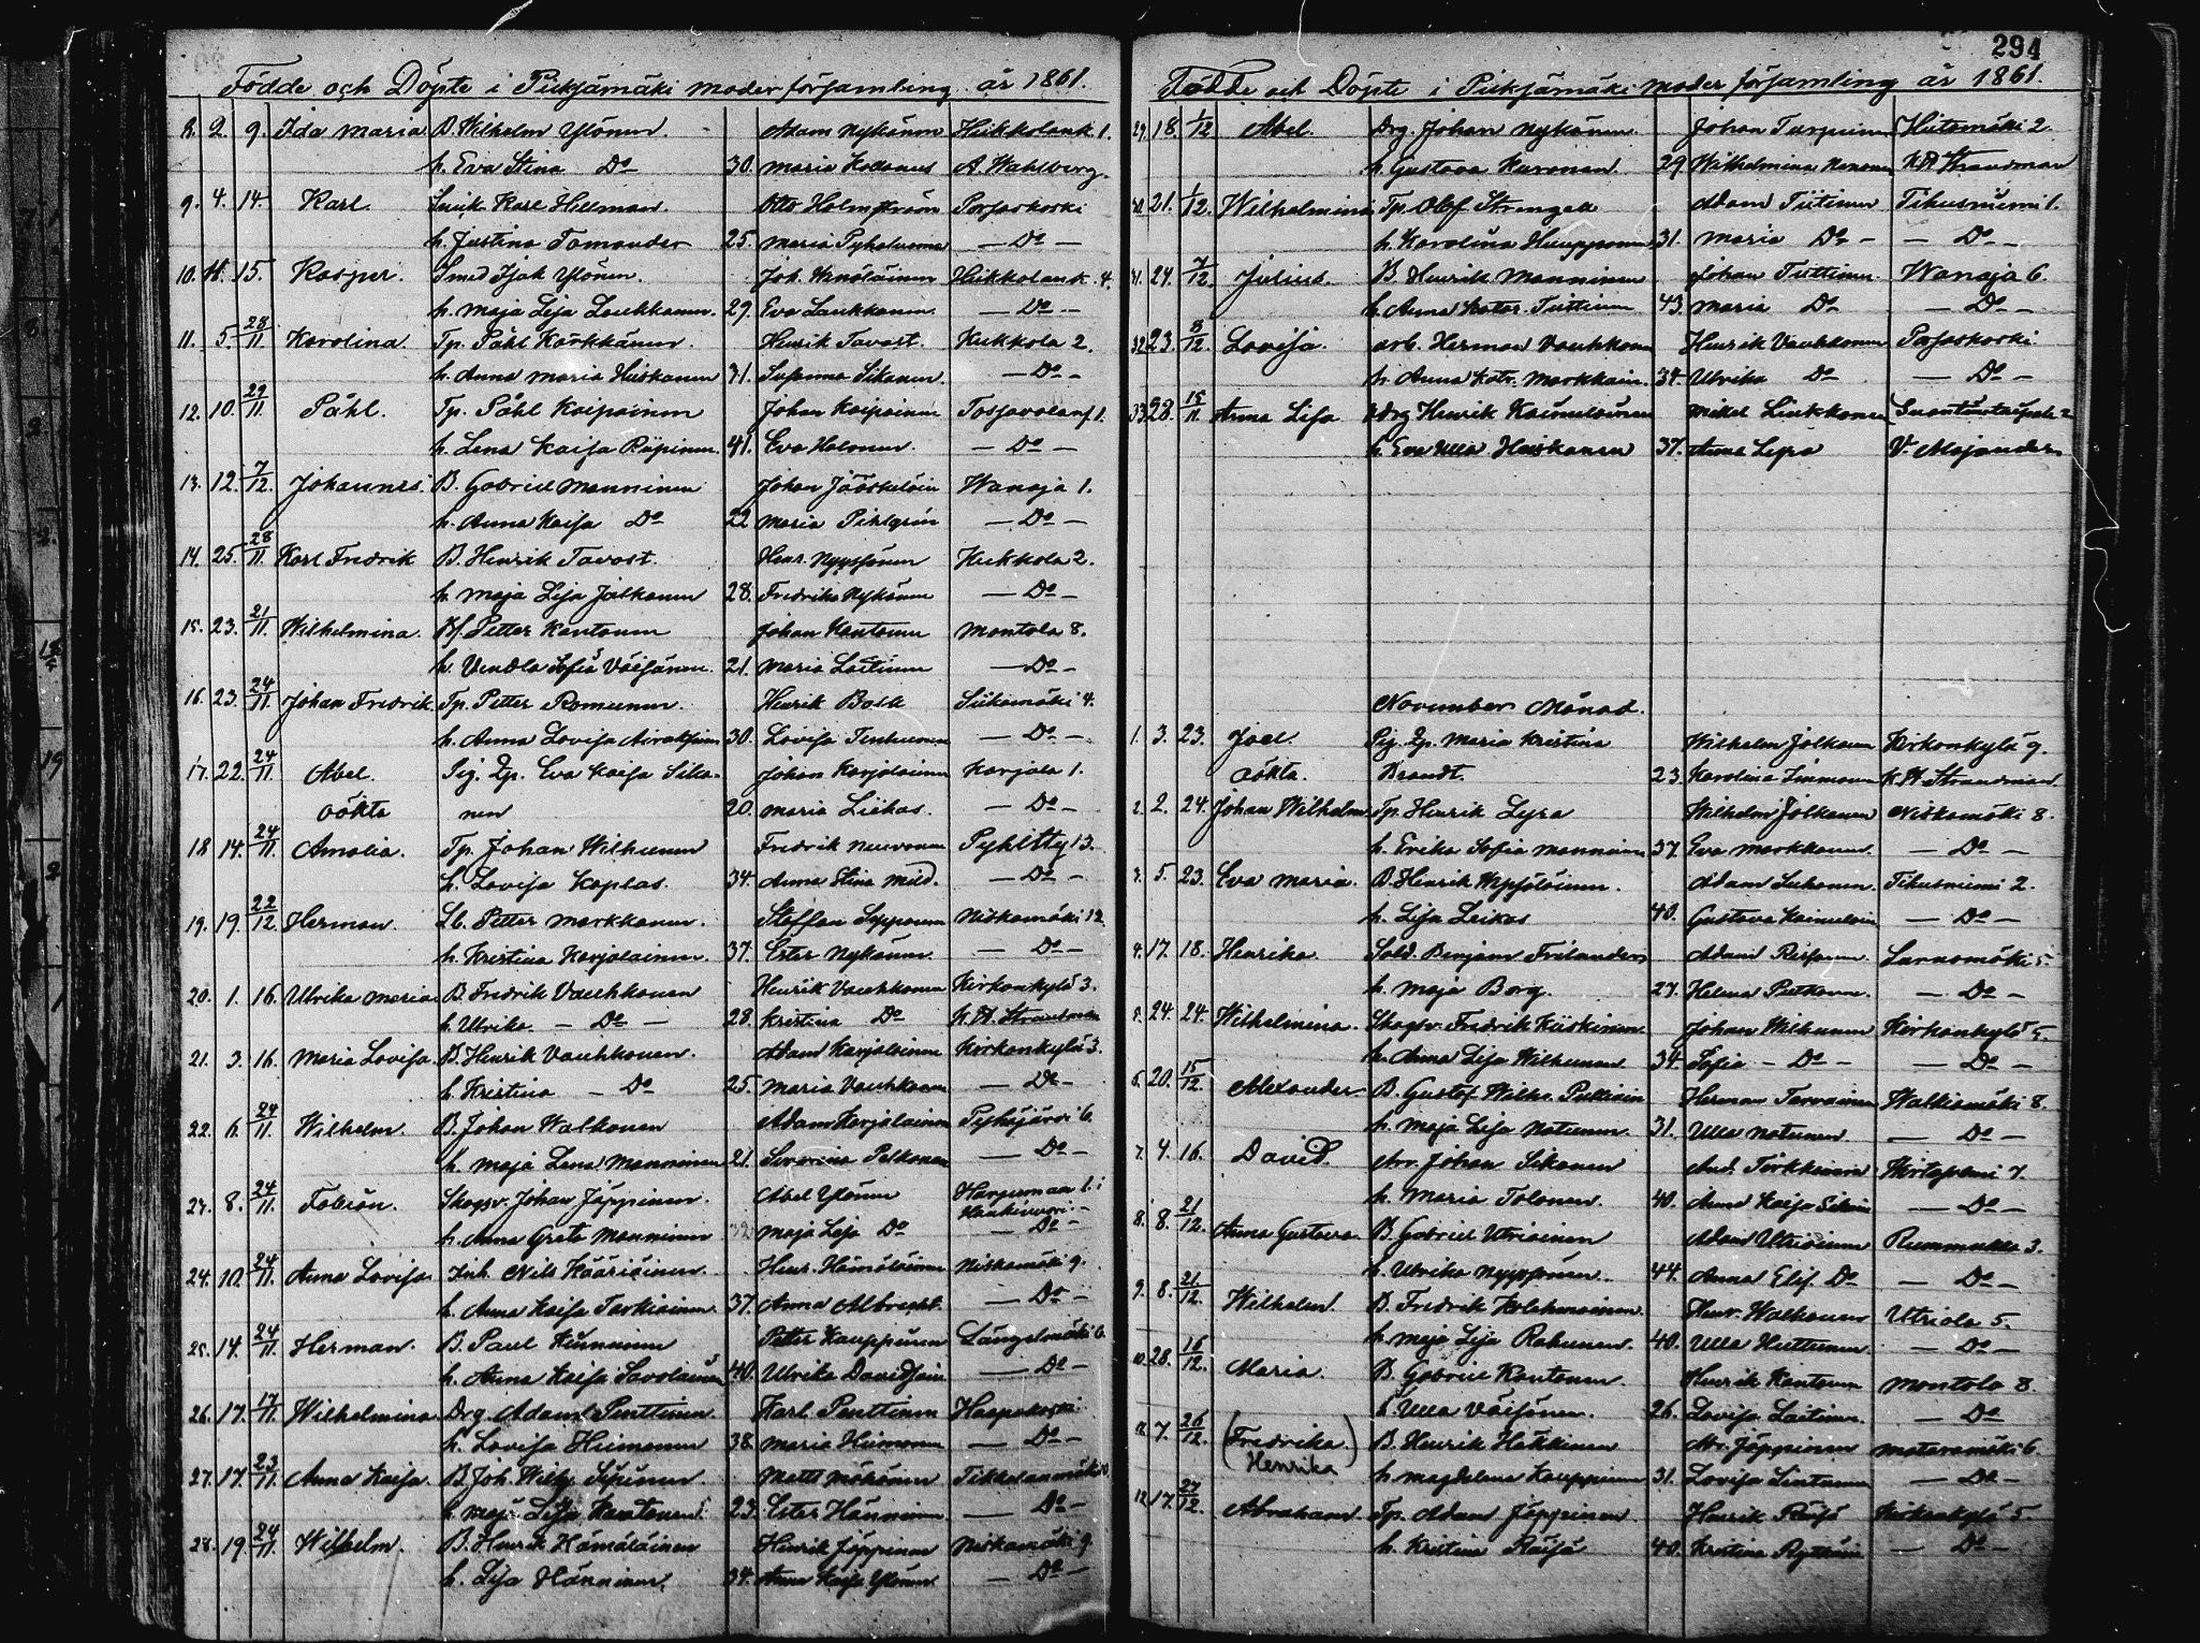 Födde och Döpte i Pieksämäki moder församling år 1861.
8. 2. 9. Ida Maria B. Wilhelm Ylönen. Adam Nykänen Heikkolank. 1.
h. Eva Stina Do 30. Maria A. Wahlberg.
9. 4. 14. Karl Karl Hellman. Otto Holmström Porsaskoski
h. Justina Tomander 25. Maria — Do —
10. 11. 15. Kasper. Smed Isak Ylönen. Joh. Heikkolank. 4.
h. Maja Lisa Laukkanen. 29. Eva Laukkanen — Do —
11. 5. 28/11 Karolina Tp. Påhl Kärkkäinen. Henrik Tavast. Kukkola 2.
h. Anna Maria Heiskanen 31. Susanna Sikanen. — Do —
12. 10. 29/11 Påhl. Tp. Påhl Kaipainen Johan Kaipainen 1.
h. Lena Kaisa Riipinen. 41. Eva Halonen. — Do —
13. 12. 7/12. Johannes. B. Gabriel Manninen Johan Jääskeläin Wanaja 1.
h. Anna Kaisa Do 22 Maria Pihlgrén — Do —
14. 25. 28/11. Karl Fredrik B. Henrik Tavast. Henr. Nyyssönen Kukkola 2.
h. Maja Lisa Jalkanen 28. Fredrika Nykänen — Do —
15. 23. 21/11. Wilhelmina. Petter Kantanen Johan Kantanen Montola 8.
h. Vendla Sofia Väisänen. 21. Maria Laitinen — Do —
16. 23. 24/11. Johan Fredrik. Tp. Petter Romunen. Henrik Boll Siikamäki 4.
h. Anna Lovisa Airaksinen 30. Lovisa — Do —
17. 22. 24/11 Abel. Pig. Zp. Eva Kaisa Sika- Johan Karjalainen Karjala 1.
oäkta nen 20. Maria Liekas. — Do —
18 14. 24/11. Amalia. Tp. Johan Wilhunen Fredrik Neuvonen Pyhitty 13.
h. Lovisa Koplas. 34. Anna Stina Mild. — Do —
19. 19. 22/12 Herman. Petter Markkanen. Staffan Sepponen Niskamäki 12.
h. Kristina Karjalainen. 37. Ester Nykänen — Do —
20. 1. 16. Ulrika Maria B. Fredrik Vauhkonen Henrik Vauhkonen Kirkonkylä 3.
h. Ulrika — Do — 28. Kristina Do K. H. Strandman
21. 3. 16. Maria Lovisa. B. Henrik Vauhkonen. Adam Karjalainen Kirkonkylä 3.
h. Kristina — Do 25. Maria Vauhkonen — Do —
22. 6. 24/11. Wilhelm. B. Johan Walkonen Adam Karjalainen Pyhäjärvi 6.
h. Maja Lena Manninen 21. Severina Pelkonen — Do —
23. 8. 24/11. Skogsv. Johan Jäppinen. Abel Ylönen Harjumaa 1.
h. Anna Greta Manninen Maja Lisa Do — Do —
24. 10. 24/11. Anna Lovisa Inh. Nils Kääriäinen. Henr. Hämäläinen Niskamäki 9.
h. Anna Kaisa Tarkiainen. 37. Anna Albrecht. — Do —
25. 14. 24/11. Herman. B. Paul Kinnunen Petter Kauppinen Längelmäki 6.
h. Anna Kaisa Savolainen 40. Ulrika Davidsain — Do —
26. 17. 17/11. Wilhelmina Drg. Adam Penttinen Karl Penttinen Haapakoski
h. Lovisa Heimonen 38. Maria Heimonen — Do —
27. 17. 23/11. Anna Kaisa. B. Joh. Wilh. Matts Mökönen
h. Maja Lisa Kantonen 23. Ester Hänninen — Do —
28. 19. 24/11. Wilhelm. B. Henrik Hämäläinen Henrik Jäppinen Niskamäki 9.
h. Lisa Hänninen. 34. Anna Kaisa Ylönen — Do —
294
Födde och Döpte i Pieksämäki moder församling år 1861.
29. 18. 1/12 Abel. Drg. Johan Nykänen. Johan Turpeinen Hietamäki 2
h. Gustava Kuronen. 29 Wilhelmina Kononen K. H. Strandman
30. 21. 1/12. Wilhelmina Tp. Olof Strengell Adam Tiitinen Tihusniemi 1.
h. Karolina Kauppinen 31. Maria Do — — Do —
31. 24. 7/12. Julius. B. Henrik Manninen Johan Tuttinen. Wanaja 6.
h. Anna Katar. Tuttinen 43. Maria Do — Do —
32 23. 8/12. Lovisa. arb. Herman Vauhkonen Henrik Vauhkonen Porsaskoski
h. Anna Katr. Markkain. 34. Ulrika Do — Do —
33. 28. 15/11. Anna Lisa Drg Henrik Kaimulainen Mikel Liukkonen
h. Eva Ulla Heiskanen 37. Anna Lyra V. Majander
November Månad.
1. 3. 23. Joel. Pig. Zp. Maria Kristina Wilhelm Jalkanen Kirkonkylä 9.
oäkta. Brandt. 23. Karolina Immonen K. H. Strandman
2. 2. 24. Johan Wilhelm Tp. Henrik Lyra Wilhelm Jalkanen Niskamäki 8.
h. Erika Sofia Manninen 37. Eva Markkanen. — Do —
3. 5. 23. Eva Maria. B. Henrik Wepsäläinen. Adam Tihusniemi 2.
h. Lisa Leikas 40. Gustava Kaimulain — Do —
4. 17. 18. Henrika. Sold. Benjam Frilander Adam Lamamäki 5.
h. Maja Borg. 27. Helena — Do —
5. 24. 24. Wilhelmina. Skogsv. Fredrik Kiiskinen Johan Wilhunen Kirkonkylä 5.
h. Anna Lisa Wilhunen 34. Sofia — Do — — Do —
6. 20. 15/12. Alexander. B. Gustaf Wilh. Pulliain Herman Tarvainen Walkiamäki 8.
h. Maja Lisa Natunen. 31. Ulla Natunen. — Do —
7. 4. 16. David. Johan Sikanen And. Virtasalmi 7.
h. Maria Tolonen. 40. Anna Kaisa — Do —
8. 8. 21/12. Anna Gustava. B. Gabriel Utriainen Adam Utriainen Rummukka 3.
h. Ulrika Nyyssönen. 44. Anna Elis. Do — Do —
9. 8. 21/12. Wilhelm. B. Fredrik Kolehmainen. Henr. Walkonen Utriala 5.
h. Maja Lisa Rahunen. 40. Ulla Huttunen — Do —
10. 28. 16/12. Maria. B. Gabriel Kantanen. Henrik Kantanen Montola 8.
h. Ulla Väisänen. 26. Lovisa Laitinen. — Do
11. 7. 26/12. (Fredrika.) B. Henrik Häkkinen Jäppinen Mataramäki 6.
Henrika h. Magdalena Kauppinen 31. Lovisa Lintunen — Do —
12. 17. 27/12. Abraham Tp. Adam Jäppinen Henrik Räisä Kirkonkylä 5.
h. Kristina Räisä 40. Kristina — Do —